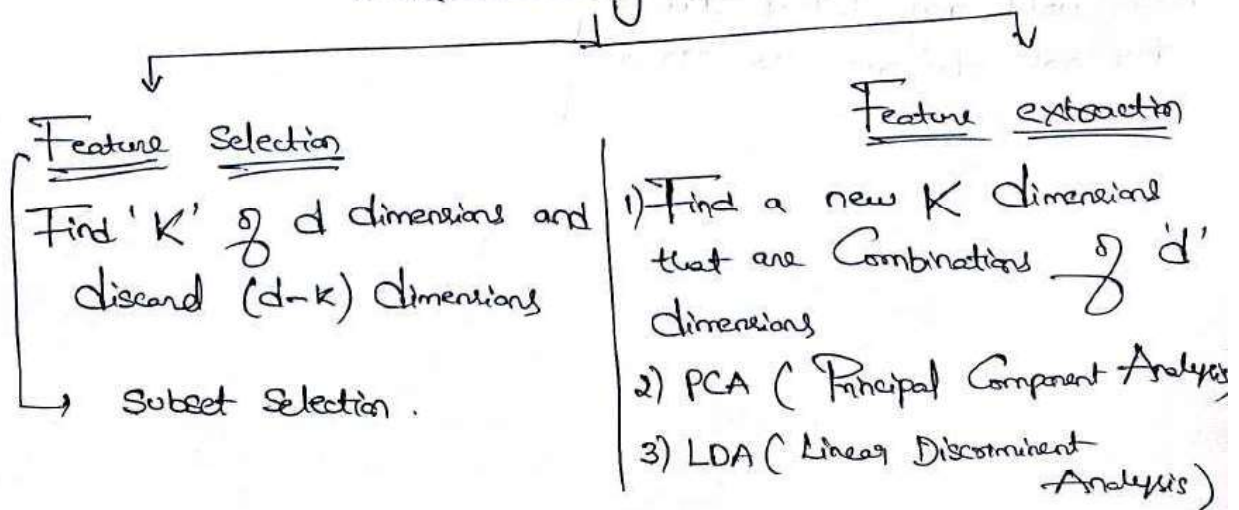 Feature Selection
Find 'K' of d dimensions and
discard (d-k) dimensions
Subset Selection.
Feature extraction
1) Find a new K dimensions
that are Combinations of 'd'
dimensions
2) PCA ( Principal Component Analysis
3) LDA ( Linear Discorminent
Analysis)